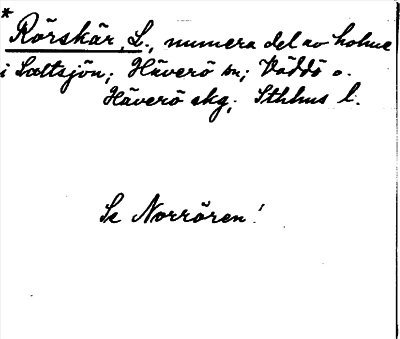 * Rörskär, L., numera del av holme
i Saltsjön; Häverö sn; Väddö o.
Häverö skg; Sthlms l.
Se Norrören!